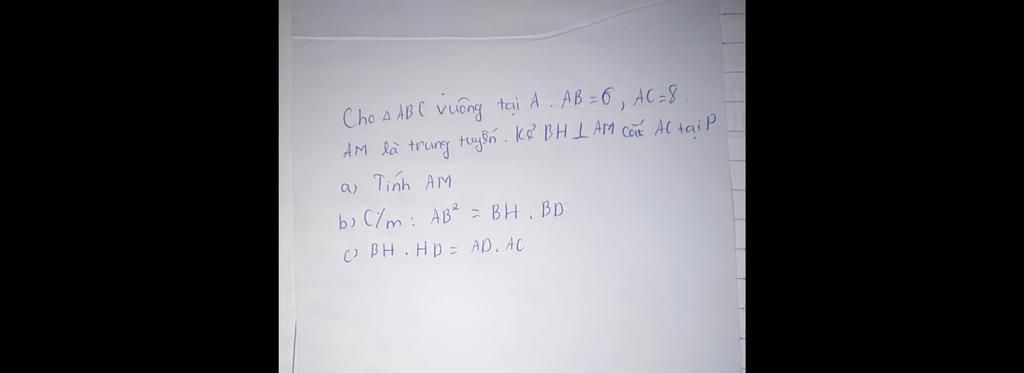 Cho △ ABC vuông tại A. AB = 6, AC = 8.
AM là trung tuyến. Kẻ BH ⊥ AM cắt AC tại D
a) Tính AM
b) C/m : AB² = BH . BD
c) BH . HD = AD. AC